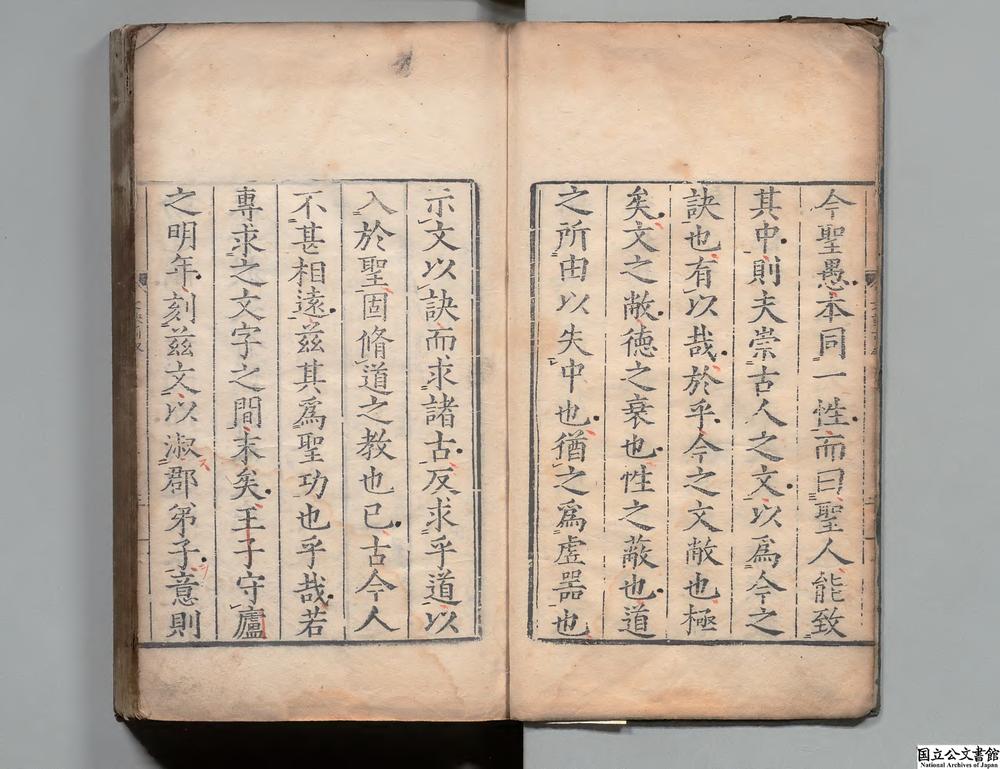 今聖愚本同一性而曰聖人能致
其中則夫崇古人之文以為今之
訣也有以哉於乎今之文敝也極
矣文之敝德之衰也性之蔽也道
之所由以失中也猶之爲虛器也
示文以訣而求諸古反求乎道以
入於聖固脩道之教也已古今人
不甚相遠兹其爲聖功也乎哉若
專求之文字之間末矣王子守廬
之明年刻兹文以淑郡弟子意則
国立公文書館
National Archives of Japan